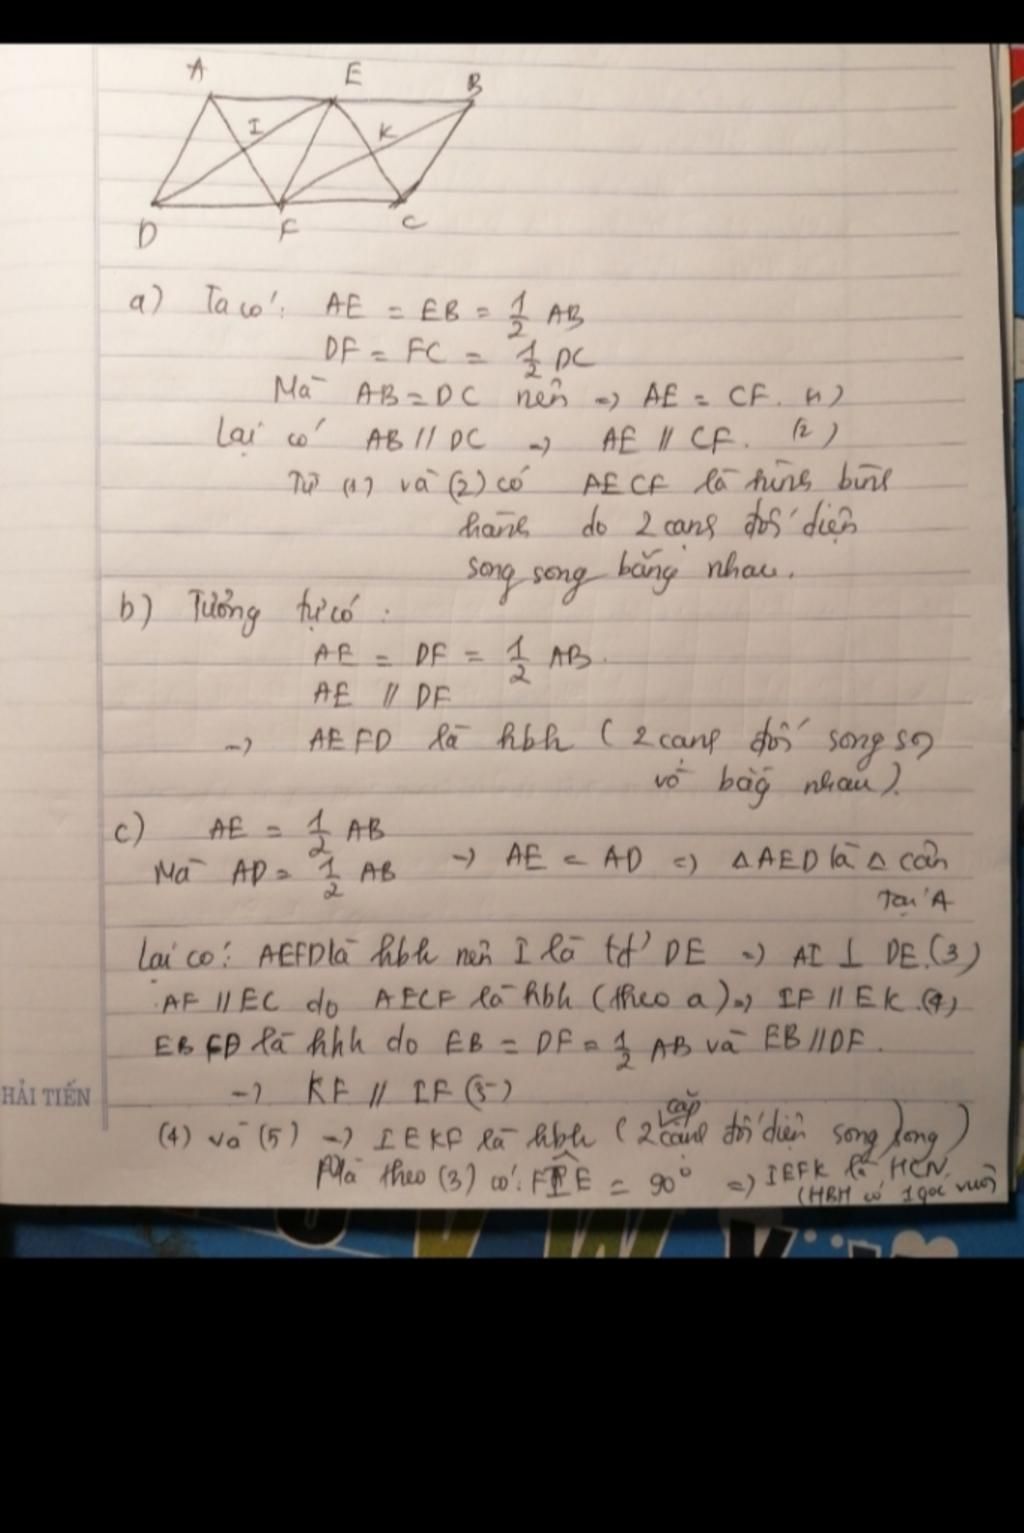 A E B
I K
D F C
a) Ta có: AE = EB = 1/2 AB
DF = FC = 1/2 DC
Mà AB = DC nên => AE = CF. (1)
Lại có AB // DC -> AE // CF. (2)
Từ (1) và (2) có AECF là hình bình
hành do 2 cạnh đối diện
song song bằng nhau.
b) Tương tự có:
AE = DF = 1/2 AB.
AE // DF
-> AEFD là hbh (2 cạnh đối song sg
và bằg nhau).
c) AE = 1/2 AB
Mà AD = 1/2 AB -> AE = AD => ΔAED là Δ cân
tại A
Lại có: AEFD là hbh nên I là tđ DE => AI ⊥ DE. (3)
AF // EC do AECF là hbh (theo a) => IF // EK. (4)
EBFD là hbh do EB = DF = 1/2 AB và EB // DF.
-> KF // IF (5)
cặp
(4) và (5) -> IEKF là hbh (2 cạnh đối diện song song)
Mà theo (3) có: FIE = 90° => IEFK là HCN.
(HBH có 1 góc vuôg
HẢI TIẾN